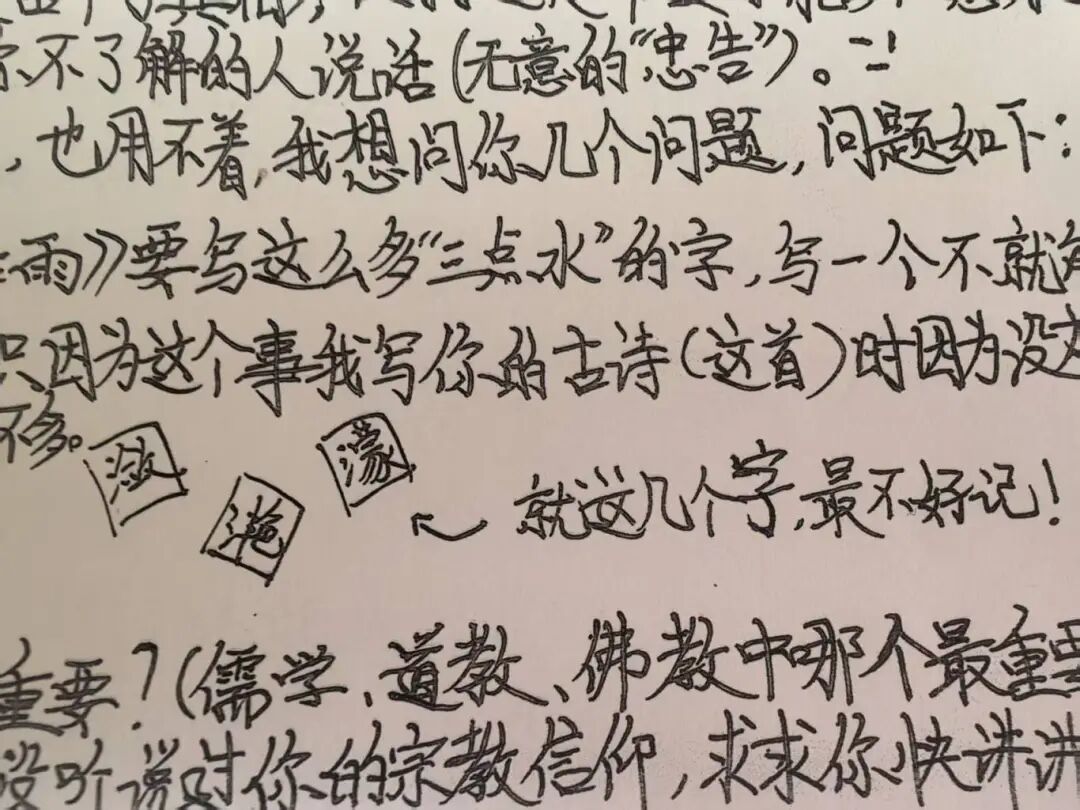 不了解的人说话(无意的“忠告”)。
，也用不着，我想问你几个问题，问题如下：
雨》要写这么多“三点水”的字，写一个不就
只因为这个事我写你的古诗(这首)时因为没
不多。
潋
滟
濛
就这几个字，最不好记！
重要？(儒学、道教、佛教中哪个最重要
没听说过你的宗教信仰，求求你快讲讲